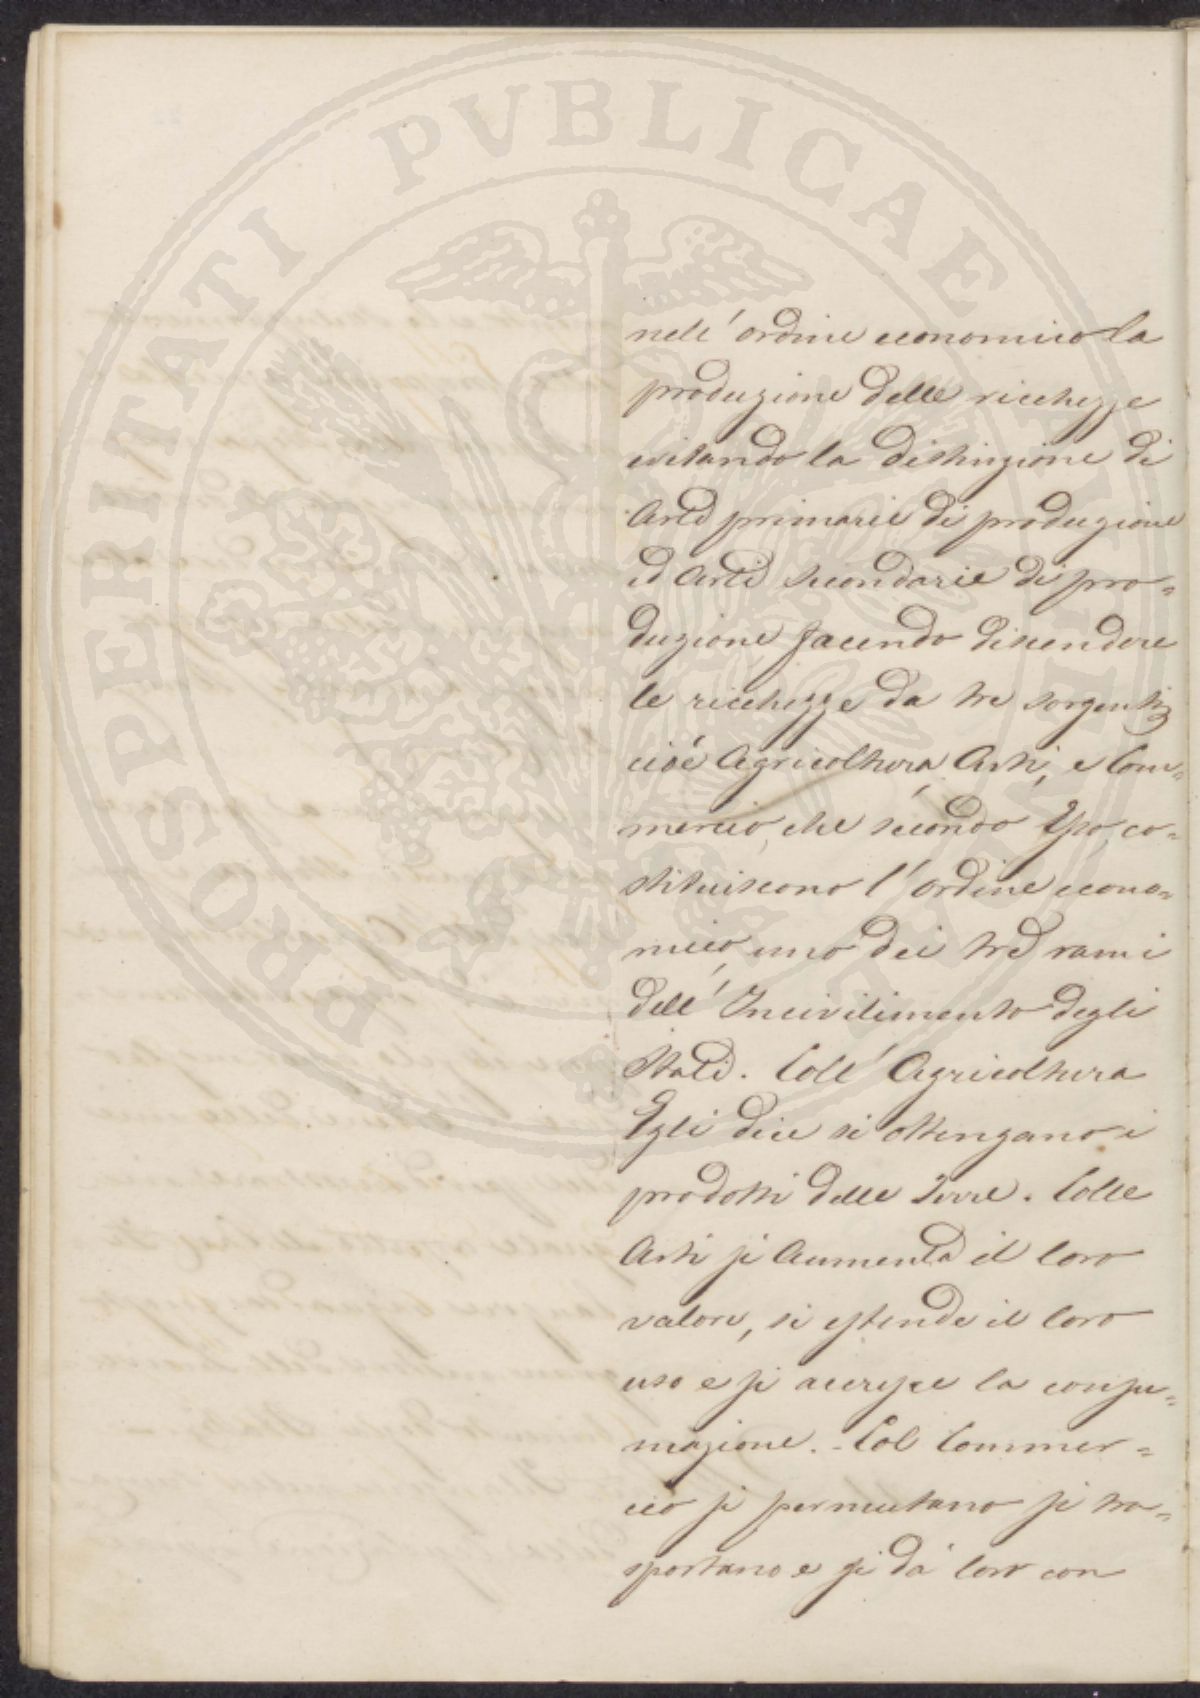 PROSPERITATI PVBLICAE
nell' ordine economico la
produzione delle ricchezze
evitando la distinzione di
Arti primarie di produzione
ed Arti secondarie di pro=
duzione facendo discendere
le ricchezze da tre sorgenti
cioé Agricoltura, Arti, e Com=
mercio, che secondo Esso, co=
stituiscono l' ordine econo=
mico, uno dei tre rami
dell' Incivilimento degli
Stati. Coll' Agricoltura
Egli dice si ottengano i
prodotti delle Terre. Colle
Arti si Aumenta il loro
valore, si estende il loro
uso e si accresce la consu=
mazione. - Col Commer=
cio si permutano si tra=
sportano e si dá loro con